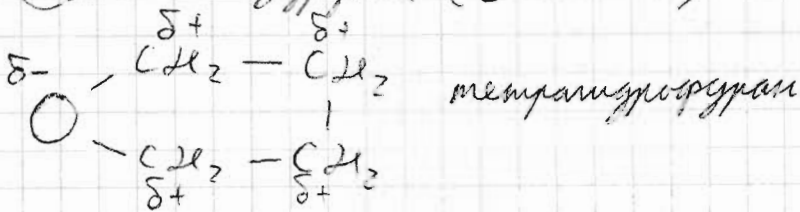 δ+ δ+
δ− CH₂ — CH₂
O тетрагидрофуран
CH₂ — CH₂
δ+ δ+